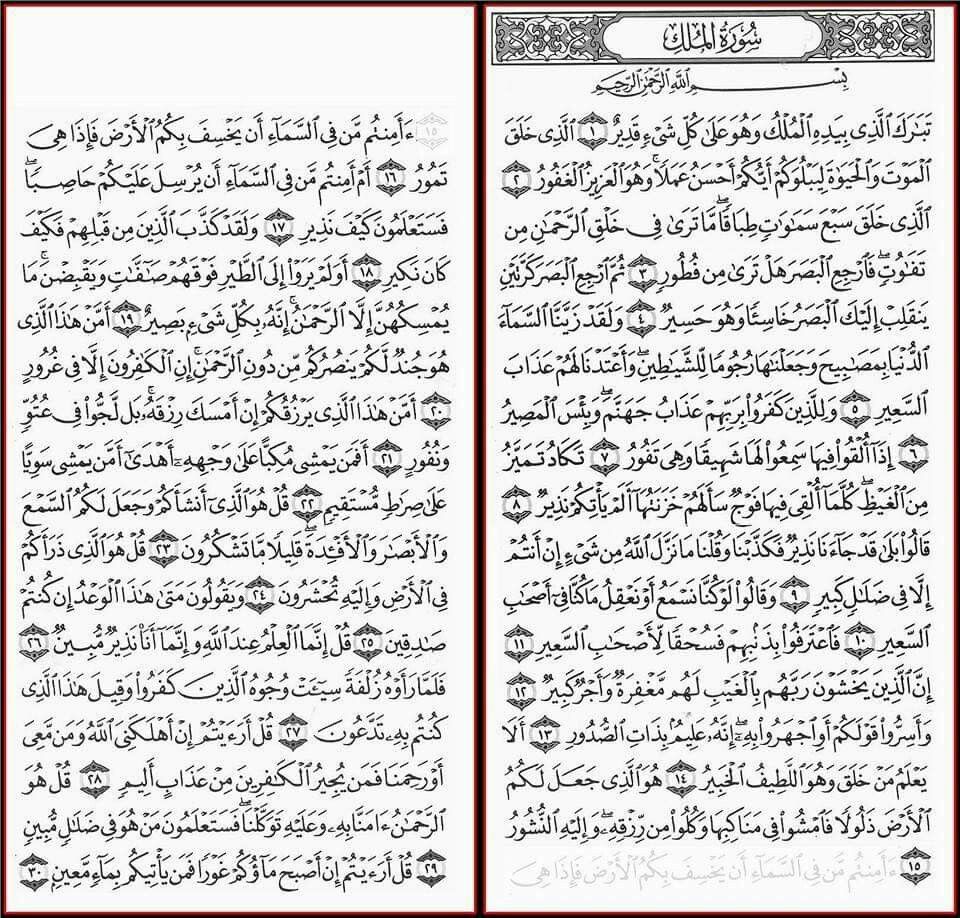 سُورَةُ الْمُلْكِ
بِسْمِ اللَّهِ الرَّحْمَٰنِ الرَّحِيمِ
تَبَارَكَ الَّذِي بِيَدِهِ الْمُلْكُ وَهُوَ عَلَىٰ كُلِّ شَيْءٍ قَدِيرٌ ١ الَّذِي خَلَقَ
الْمَوْتَ وَالْحَيَاةَ لِيَبْلُوَكُمْ أَيُّكُمْ أَحْسَنُ عَمَلًا ۚ وَهُوَ الْعَزِيزُ الْغَفُورُ ٢
الَّذِي خَلَقَ سَبْعَ سَمَاوَاتٍ طِبَاقًا ۖ مَّا تَرَىٰ فِي خَلْقِ الرَّحْمَٰنِ مِن
تَفَاوُتٍ ۖ فَارْجِعِ الْبَصَرَ هَلْ تَرَىٰ مِن فُطُورٍ ٣ ثُمَّ ارْجِعِ الْبَصَرَ كَرَّتَيْنِ
يَنقَلِبْ إِلَيْكَ الْبَصَرُ خَاسِئًا وَهُوَ حَسِيرٌ ٤ وَلَقَدْ زَيَّنَّا السَّمَاءَ
الدُّنْيَا بِمَصَابِيحَ وَجَعَلْنَاهَا رُجُومًا لِّلشَّيَاطِينِ ۖ وَأَعْتَدْنَا لَهُمْ عَذَابَ
السَّعِيرِ ٥ وَلِلَّذِينَ كَفَرُوا بِرَبِّهِمْ عَذَابُ جَهَنَّمَ ۖ وَبِئْسَ الْمَصِيرُ
٦ إِذَا أُلْقُوا فِيهَا سَمِعُوا لَهَا شَهِيقًا وَهِيَ تَفُورُ ٧ تَكَادُ تَمَيَّزُ
مِنَ الْغَيْظِ ۖ كُلَّمَا أُلْقِيَ فِيهَا فَوْجٌ سَأَلَهُمْ خَزَنَتُهَا أَلَمْ يَأْتِكُمْ نَذِيرٌ ٨
قَالُوا بَلَىٰ قَدْ جَاءَنَا نَذِيرٌ فَكَذَّبْنَا وَقُلْنَا مَا نَزَّلَ اللَّهُ مِن شَيْءٍ إِنْ أَنتُمْ
إِلَّا فِي ضَلَالٍ كَبِيرٍ ٩ وَقَالُوا لَوْ كُنَّا نَسْمَعُ أَوْ نَعْقِلُ مَا كُنَّا فِي أَصْحَابِ
السَّعِيرِ ١٠ فَاعْتَرَفُوا بِذَنبِهِمْ فَسُحْقًا لِّأَصْحَابِ السَّعِيرِ ١١
إِنَّ الَّذِينَ يَخْشَوْنَ رَبَّهُم بِالْغَيْبِ لَهُم مَّغْفِرَةٌ وَأَجْرٌ كَبِيرٌ ١٢
وَأَسِرُّوا قَوْلَكُمْ أَوِ اجْهَرُوا بِهِ ۖ إِنَّهُ عَلِيمٌ بِذَاتِ الصُّدُورِ ١٣ أَلَا
يَعْلَمُ مَنْ خَلَقَ وَهُوَ اللَّطِيفُ الْخَبِيرُ ١٤ هُوَ الَّذِي جَعَلَ لَكُمُ
الْأَرْضَ ذَلُولًا فَامْشُوا فِي مَنَاكِبِهَا وَكُلُوا مِن رِّزْقِهِ ۖ وَإِلَيْهِ النُّشُورُ
١٥ ءَأَمِنتُم مَّن فِي السَّمَاءِ أَن يَخْسِفَ بِكُمُ الْأَرْضَ فَإِذَا هِيَ
١٥ ءَأَمِنتُم مَّن فِي السَّمَاءِ أَن يَخْسِفَ بِكُمُ الْأَرْضَ فَإِذَا هِيَ
تَمُورُ ١٦ أَمْ أَمِنتُم مَّن فِي السَّمَاءِ أَن يُرْسِلَ عَلَيْكُمْ حَاصِبًا ۖ
فَسَتَعْلَمُونَ كَيْفَ نَذِيرِ ١٧ وَلَقَدْ كَذَّبَ الَّذِينَ مِن قَبْلِهِمْ فَكَيْفَ
كَانَ نَكِيرِ ١٨ أَوَلَمْ يَرَوْا إِلَى الطَّيْرِ فَوْقَهُمْ صَافَّاتٍ وَيَقْبِضْنَ ۚ مَا
يُمْسِكُهُنَّ إِلَّا الرَّحْمَٰنُ ۚ إِنَّهُ بِكُلِّ شَيْءٍ بَصِيرٌ ١٩ أَمَّنْ هَٰذَا الَّذِي
هُوَ جُندٌ لَّكُمْ يَنصُرُكُم مِّن دُونِ الرَّحْمَٰنِ ۚ إِنِ الْكَافِرُونَ إِلَّا فِي غُرُورٍ
٢٠ أَمَّنْ هَٰذَا الَّذِي يَرْزُقُكُمْ إِنْ أَمْسَكَ رِزْقَهُ ۚ بَل لَّجُّوا فِي عُتُوٍّ
وَنُفُورٍ ٢١ أَفَمَن يَمْشِي مُكِبًّا عَلَىٰ وَجْهِهِ أَهْدَىٰ أَمَّن يَمْشِي سَوِيًّا
عَلَىٰ صِرَاطٍ مُّسْتَقِيمٍ ٢٢ قُلْ هُوَ الَّذِي أَنشَأَكُمْ وَجَعَلَ لَكُمُ السَّمْعَ
وَالْأَبْصَارَ وَالْأَفْئِدَةَ ۖ قَلِيلًا مَّا تَشْكُرُونَ ٢٣ قُلْ هُوَ الَّذِي ذَرَأَكُمْ
فِي الْأَرْضِ وَإِلَيْهِ تُحْشَرُونَ ٢٤ وَيَقُولُونَ مَتَىٰ هَٰذَا الْوَعْدُ إِن كُنتُمْ
صَادِقِينَ ٢٥ قُلْ إِنَّمَا الْعِلْمُ عِندَ اللَّهِ وَإِنَّمَا أَنَا نَذِيرٌ مُّبِينٌ ٢٦
فَلَمَّا رَأَوْهُ زُلْفَةً سِيئَتْ وُجُوهُ الَّذِينَ كَفَرُوا وَقِيلَ هَٰذَا الَّذِي
كُنتُم بِهِ تَدَّعُونَ ٢٧ قُلْ أَرَءَيْتُمْ إِنْ أَهْلَكَنِيَ اللَّهُ وَمَن مَّعِيَ
أَوْ رَحِمَنَا فَمَن يُجِيرُ الْكَافِرِينَ مِنْ عَذَابٍ أَلِيمٍ ٢٨ قُلْ هُوَ
الرَّحْمَٰنُ ءَامَنَّا بِهِ وَعَلَيْهِ تَوَكَّلْنَا ۖ فَسَتَعْلَمُونَ مَنْ هُوَ فِي ضَلَالٍ مُّبِينٍ
٢٩ قُلْ أَرَءَيْتُمْ إِنْ أَصْبَحَ مَاؤُكُمْ غَوْرًا فَمَن يَأْتِيكُم بِمَاءٍ مَّعِينٍ ٣٠